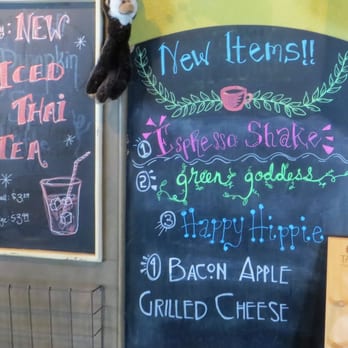 NEW
ICED
THAI
TEA
New Items!!
① Espresso Shake
② green goddess
③ Happy Hippie
④ BACON APPLE
GRILLED CHEESE